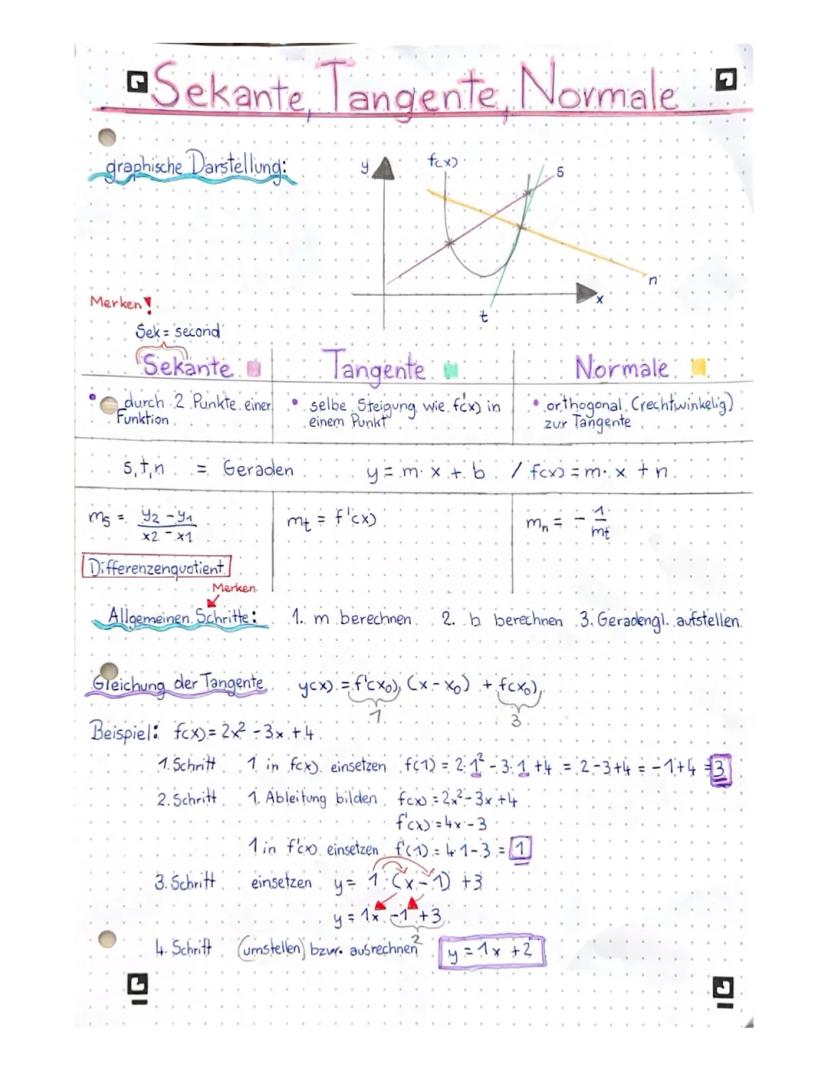 Sekante, Tangente, Normale
graphische Darstellung:
y
f(x)
s
n
x
t
Merken!
Sek = second
Sekante
Tangente
Normale
• durch 2 Punkte einer Funktion
• selbe Steigung wie f(x) in einem Punkt
• orthogonal (rechtwinkelig) zur Tangente
s,t,n = Geraden y = m · x + b / f(x) = m · x + n
mₛ = y₂ - y₁ / x2 - x1
mₜ = f'(x)
mₙ = - 1/mt
Differenzenquotient
Merken
Allgemeinen Schritte: 1. m berechnen 2. b berechnen 3. Geradengl. aufstellen
Gleichung der Tangente y(x) = f'(x₀) (x - x₀) + f(x₀)
1 3
Beispiel: f(x) = 2x² - 3x + 4
1. Schritt 1 in f(x) einsetzen f(1) = 2·1² - 3·1 + 4 = 2 - 3 + 4 = -1 + 4 = 3
2. Schritt 1. Ableitung bilden f(x) = 2x² - 3x + 4
f'(x) = 4x - 3
1 in f'(x) einsetzen f'(1) = 4·1 - 3 = 1
3. Schritt einsetzen y = 1·(x - 1) + 3
y = 1x - 1 + 3
2
4. Schritt (umstellen) bzw. ausrechnen y = 1x + 2